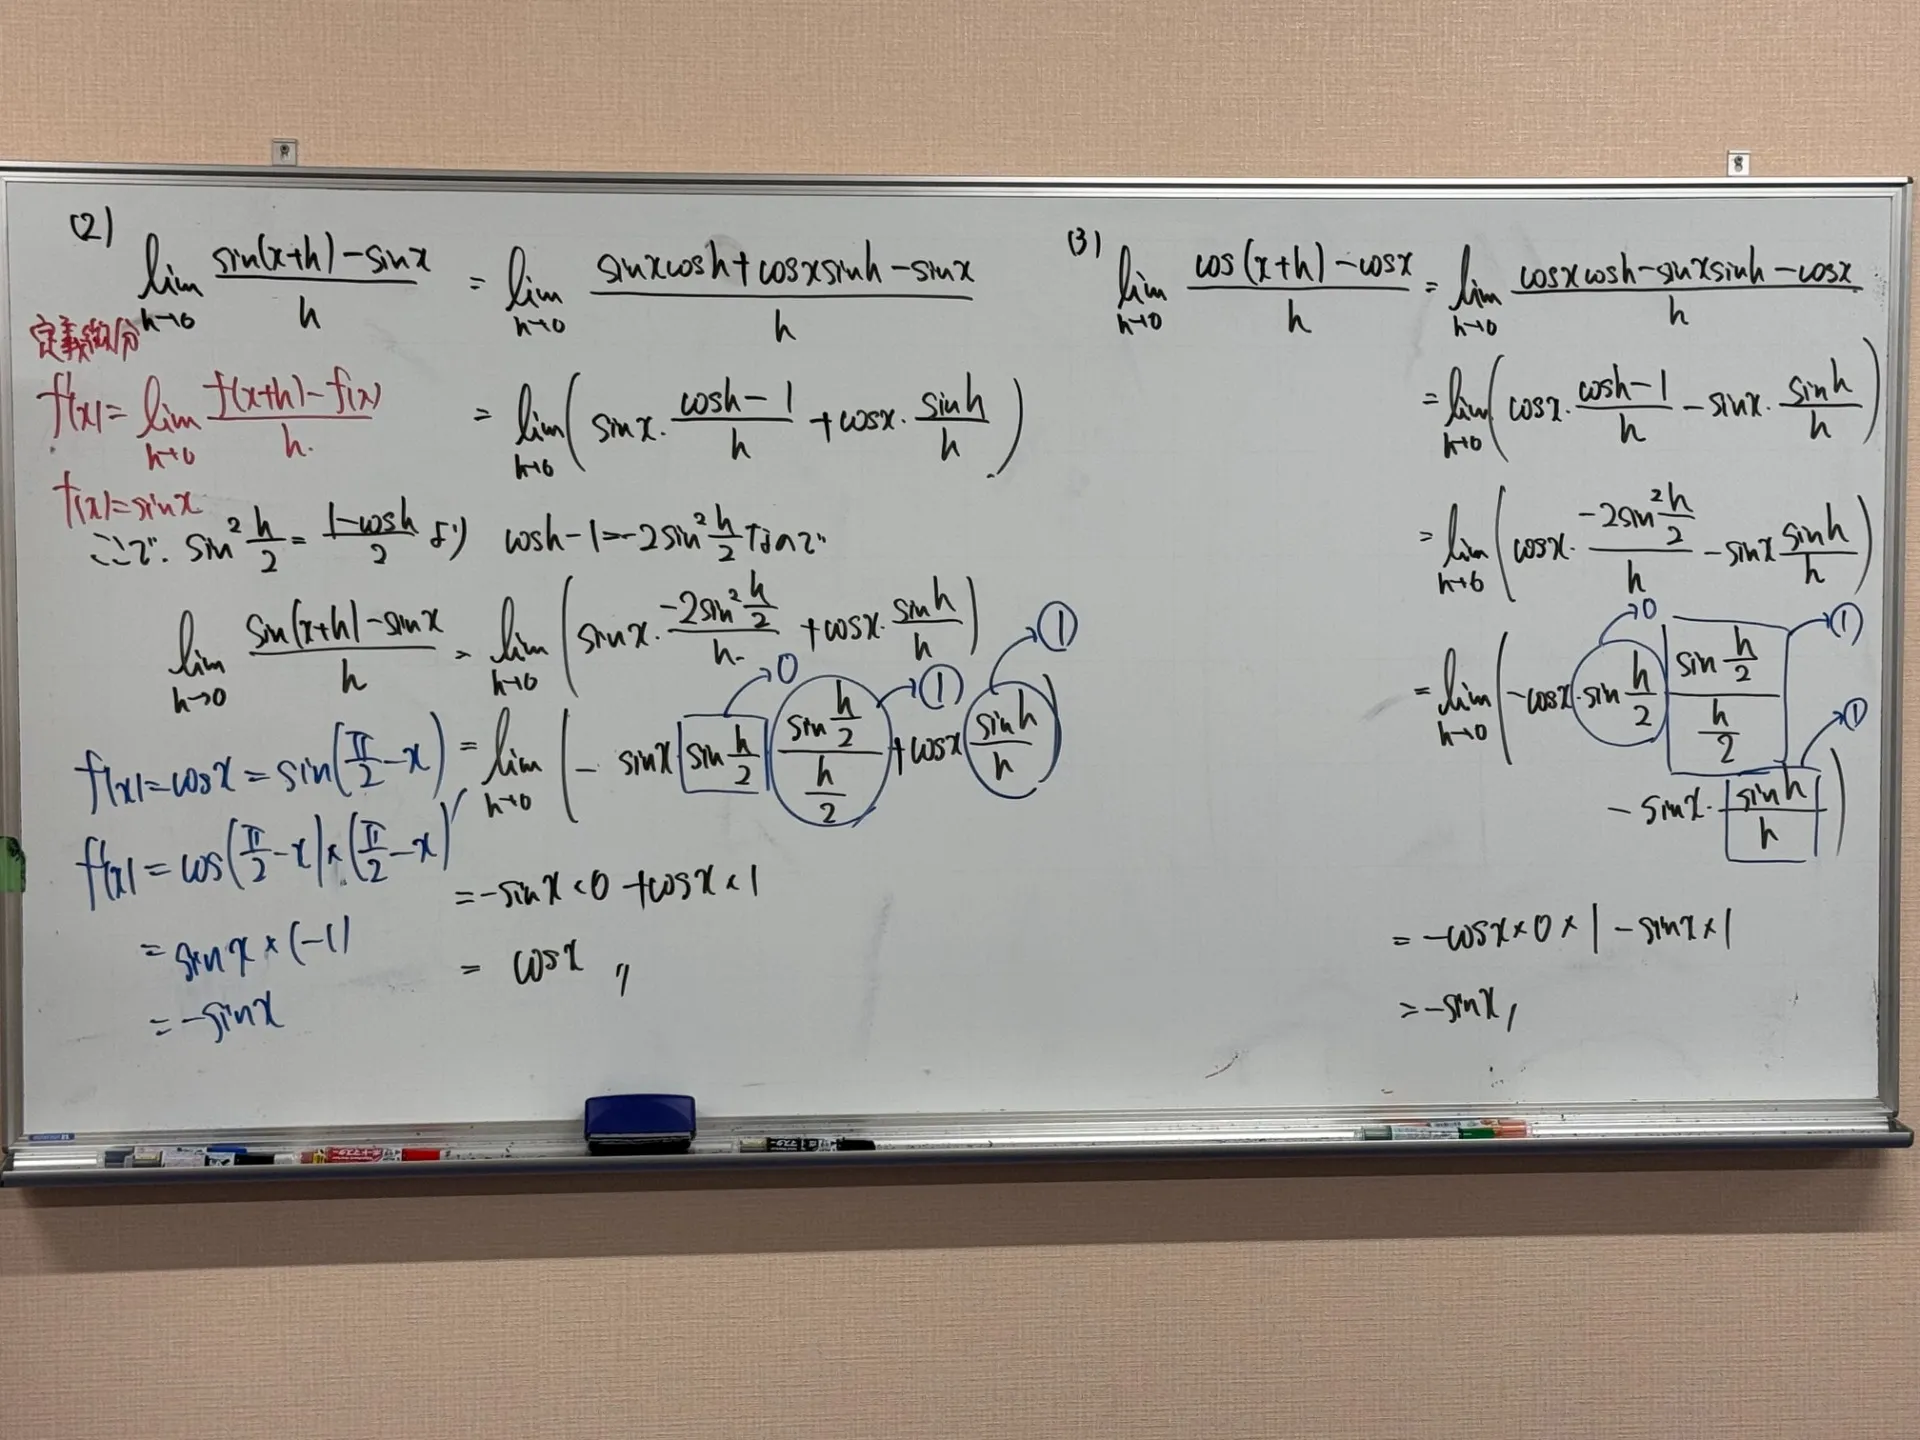 (2)
lim h→0 (sin(x+h)-sinx)/h = lim h→0 (sinxcosh+cosxsinh-sinx)/h
定義微分
f'(x)=lim h→0 (f(x+h)-f(x))/h.
= lim h→0 (sinx・(cosh-1)/h + cosx・(sinh)/h)
f(x)=sinx
ここで、sin²h/2 = (1-cosh)/2 より cosh-1=-2sin²h/2 なので
lim h→0 (sin(x+h)-sinx)/h = lim h→0 (sinx・(-2sin²h/2)/h + cosx・(sinh)/h)
→0 →① →①
= lim h→0 (- sinx sin h/2 (sin h/2)/(h/2) + cosx (sinh)/h)
=-sinx×0+cosx×1
= cosx 〃
f(x)=cosx=sin(π/2-x)
f'(x)=cos(π/2-x)×(π/2-x)′
=sinx×(-1)
=-sinx
(3)
lim h→0 (cos(x+h)-cosx)/h = lim h→0 (cosxcosh-sinxsinh-cosx)/h
=lim h→0 (cosx・(cosh-1)/h - sinx・(sinh)/h)
=lim h→0 (cosx・(-2sin²h/2)/h - sinx (sinh)/h)
→0 →①
=lim h→0 (-cosx・sin h/2 (sin h/2)/(h/2)
→①
- sinx・(sinh)/h)
=-cosx×0×1-sinx×1
=-sinx,